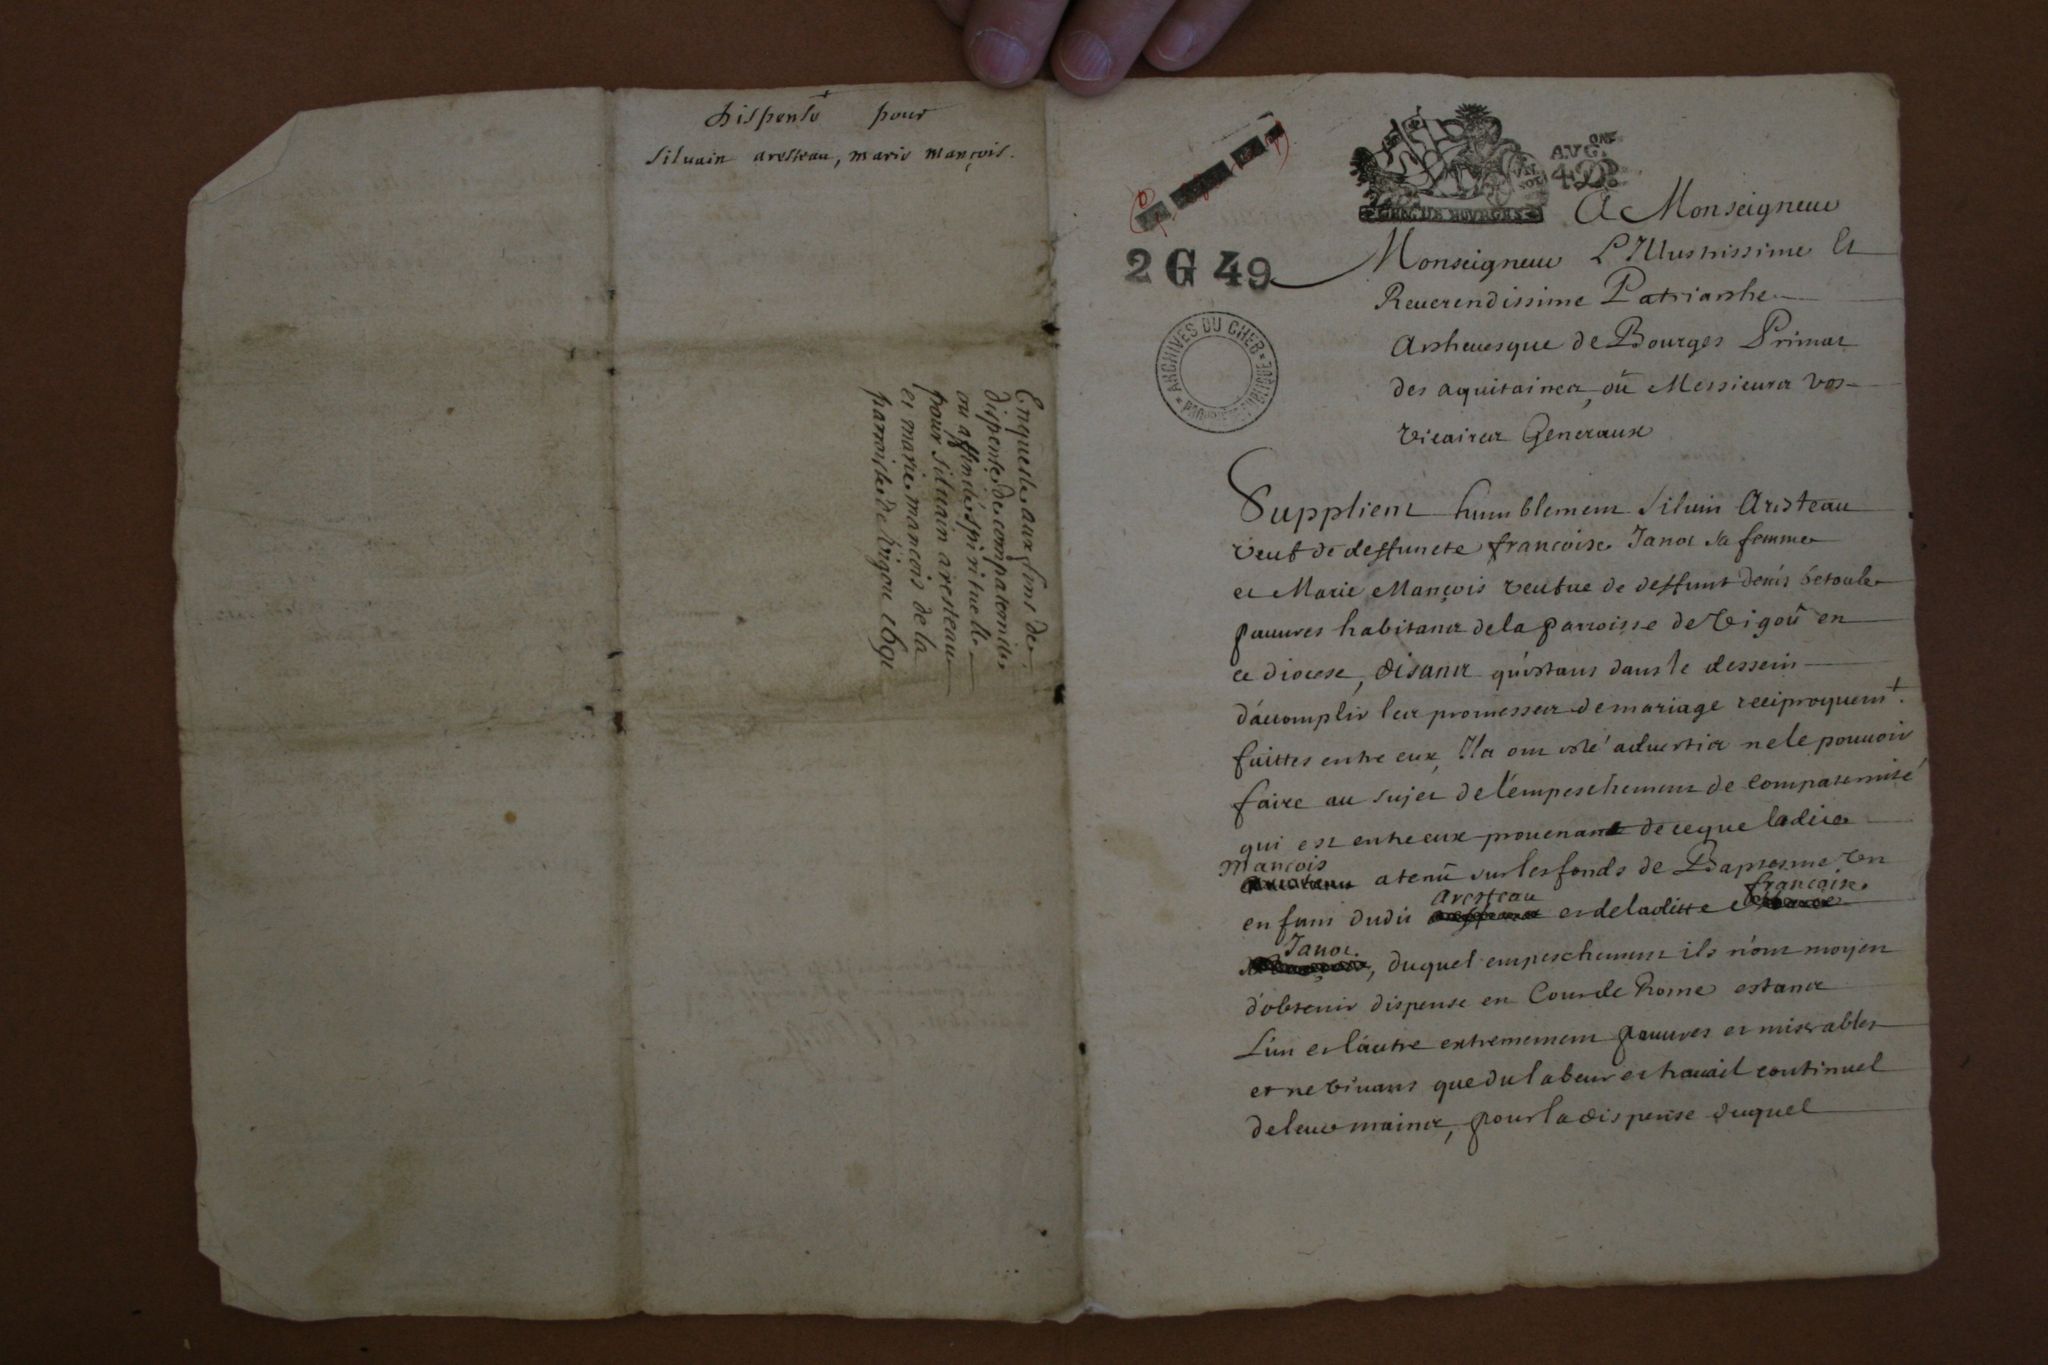 dispense pour
silvain aresteau, marie mançois.
Enqueste aux fins de
dispense de compaternité
ou affinité spirituelle
pour siluain aresteau
et marie mançois de la
parroisse de Vigou 1691
AVG.
4 D
GEN. DE BOURGES
2 G 49
ARCHIVES DU CHER
A Monseigneur
Monseigneur L'Illustrissime Et
Reuerendissime Patriarche
Archeuesque de Bourges Primat
des aquitaines, où Messieurs vos
vicaires Generaux
Supplient humblement Siluin Aresteau
veuf de deffuncte françoise Janot sa femme
et Marie Mançois veufue de deffunt denis betoule
pauures habitans de la parroisse de Vigoû en
ce diocese, disans qu'estans dans le dessein
d'accomplir les promesses de mariage reciproquemt.
faittes entre eux, Ils ont esté aduertis ne le pouuoir
faire au sujet de l'empeschement de compaternité
qui est entre eux prouenant de ce que ladite
Mançois
a tenû sur les fonds de Baptesme un
aresteau françoise
enfant dudit et de laditte
Janot
, duquel empeschement ils n'ont moyen
d'obtenir dispense en Cour de Rome estans
L'un et l'autre extremement pauures et miserables
et ne viuans que du labeur et trauail continuel
de leurs mains, pour la dispense duquel